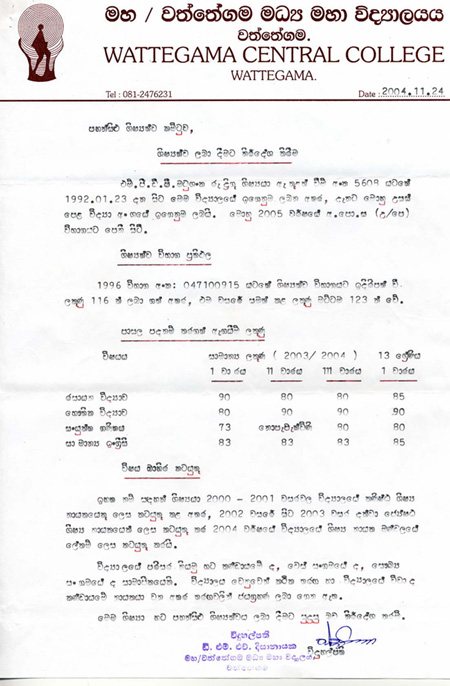 මහ / වත්තේගම මධ්‍ය මහා විද්‍යාලයය
වත්තේගම.
WATTEGAMA CENTRAL COLLEGE
WATTEGAMA.
Tel : 081-2476231
Date : 2004.11.24
ශිෂ්‍යත්ව කමිටුව,
ශිෂ්‍යත්ව ලබා දීමට නිර්දේශ කිරීම
අංක 5608 යටතේ
1992.01.23 දින සිට මෙම විද්‍යාලයේ ඉගෙනුම ලබන අතර, දැනට මොහු උසස්
පෙළ විද්‍යා අංශයේ ඉගෙනුම ලබයි. මොහු 2005 වර්ෂයේ අ.පො.ස (උ/පෙ)
විභාගයට පෙනී සිටී.
ශිෂ්‍යත්ව විභාග ප්‍රතිඵල
1996 විභාග අංක: 047100915 යටතේ ශිෂ්‍යත්ව විභාගයට ඉදිරිපත් වී
ලකුණු 116 ක් ලබා ගත් අතර, එම වසරේ සමත් කළ ලකුණු මට්ටම 123 ක් වේ.
පාසල පදනම් කරගත් ඇගයීම් ලකුණු
විෂයය
සාමාන්‍ය ලකුණු ( 2003/ 2004 )
13 ශ්‍රේණිය
1 වාරය 11 වාරය 111 වාරය 1 වාරය
රසායන විද්‍යාව 90 80 80 85
භෞතික විද්‍යාව 80 90 90 90
සංයුක්ත ගණිතය 73 නොපැවැත්විණි 80 80
සාමාන්‍ය ඉංග්‍රීසි 83 83 83 85
විෂය බාහිර කටයුතු
ඉහත නම් සඳහන් ශිෂ්‍යයා 2000 - 2001 වසරවල විද්‍යාලයේ කනිෂ්ඨ ශිෂ්‍ය
නායකයෙකු ලෙස කටයුතු කළ අතර, 2002 වසරේ සිට 2003 වසර දක්වා ජ්‍යෙෂ්ඨ
ශිෂ්‍ය නායකයෙක් ලෙස කටයුතු කර 2004 වර්ෂයේ විද්‍යාලයේ ශිෂ්‍ය නායක මණ්ඩලයේ
ලේකම් ලෙස කටයුතු කරයි.
විද්‍යාලයේ කණ්ඩායමේ ද, චෙස් සංගමයේ ද, සෞඛ්‍ය
සංගමයේ ද සාමාජිකයෙකි. විද්‍යාලය වෙනුවෙන් කථික තරඟ හා විද්‍යාලයේ විවාද
කණ්ඩායමේ නායකයා වන අතර තරඟවලින් ජයග්‍රහණ ලබා ගෙන ඇත.
මෙම ශිෂ්‍යයා හට ශිෂ්‍යත්වය ලබා දීමට සුදුසු බව නිර්දේශ කරමි.
විදුහල්පති
විදුහල්පති
ඩී. එම්. එච්. දිසානායක
මහ/වත්තේගම මධ්‍ය මහා විද්‍යාලය
වත්තේගම